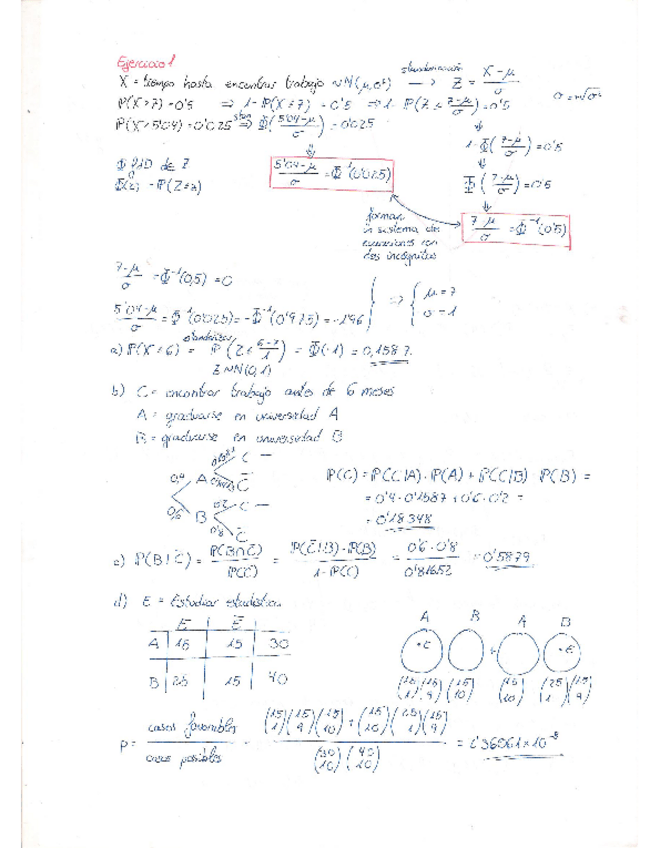 Ejercicio 1
X = tiempo hasta encontrar trabajo ~ N(μ,σ²) estandarización → Z = (X-μ)/σ
σ = +√σ²
P(X>7) = 0'5 ⇒ 1- P(X≤7) = 0'5 ⇒ 1- P(Z ≤ (7-μ)/σ) = 0'5
P(X≤5'04) = 0'025 ⇒ Φ((5'04-μ)/σ) = 0'025
1-Φ((7-μ)/σ) = 0'5
(5'04-μ)/σ = Φ⁻¹(0'025)
Φ de Z
Φ(z) = P(Z≤z)
Φ((7-μ)/σ) = 0'5
(7-μ)/σ = Φ⁻¹(0'5)
forman
un sistema de
ecuaciones con
dos incógnitas
(7-μ)/σ = Φ⁻¹(0,5) = 0
(5'04-μ)/σ = Φ⁻¹(0'025) = -Φ⁻¹(0'975) = -1'96 } ⇒ { μ = 7 σ = 1
a) P(X<6) = P(Z < (6-7)/1) = Φ(-1) = 0,1587.
Z ~ N(0,1)
b) C = encontrar trabajo antes de 6 meses
A = graduarse en universidad A
B = graduarse en universidad B
0,4 A C
C̄
0,6 B 0'2 C
0'8 C̄
P(C) = P(C|A)·P(A) + P(C|B)·P(B) =
= 0'4·0'1587 + 0'6·0'2 =
= 0'18348
c) P(B|C̄) = P(B∩C̄)/P(C̄) = P(C̄|B)·P(B)/(1-P(C)) = 0'6·0'8/0'81652 = 0'5879
d) E = Estudiar estadística
E Ē
A 15 15 30
B 25 15 40
A B A B
·E + ·E
(15 1)(15 9) (15 10) (15 10) (25 1)(15 9)
p = casos favorables / casos posibles = / (30 10)(40 10) = 1'36061×10⁻⁸